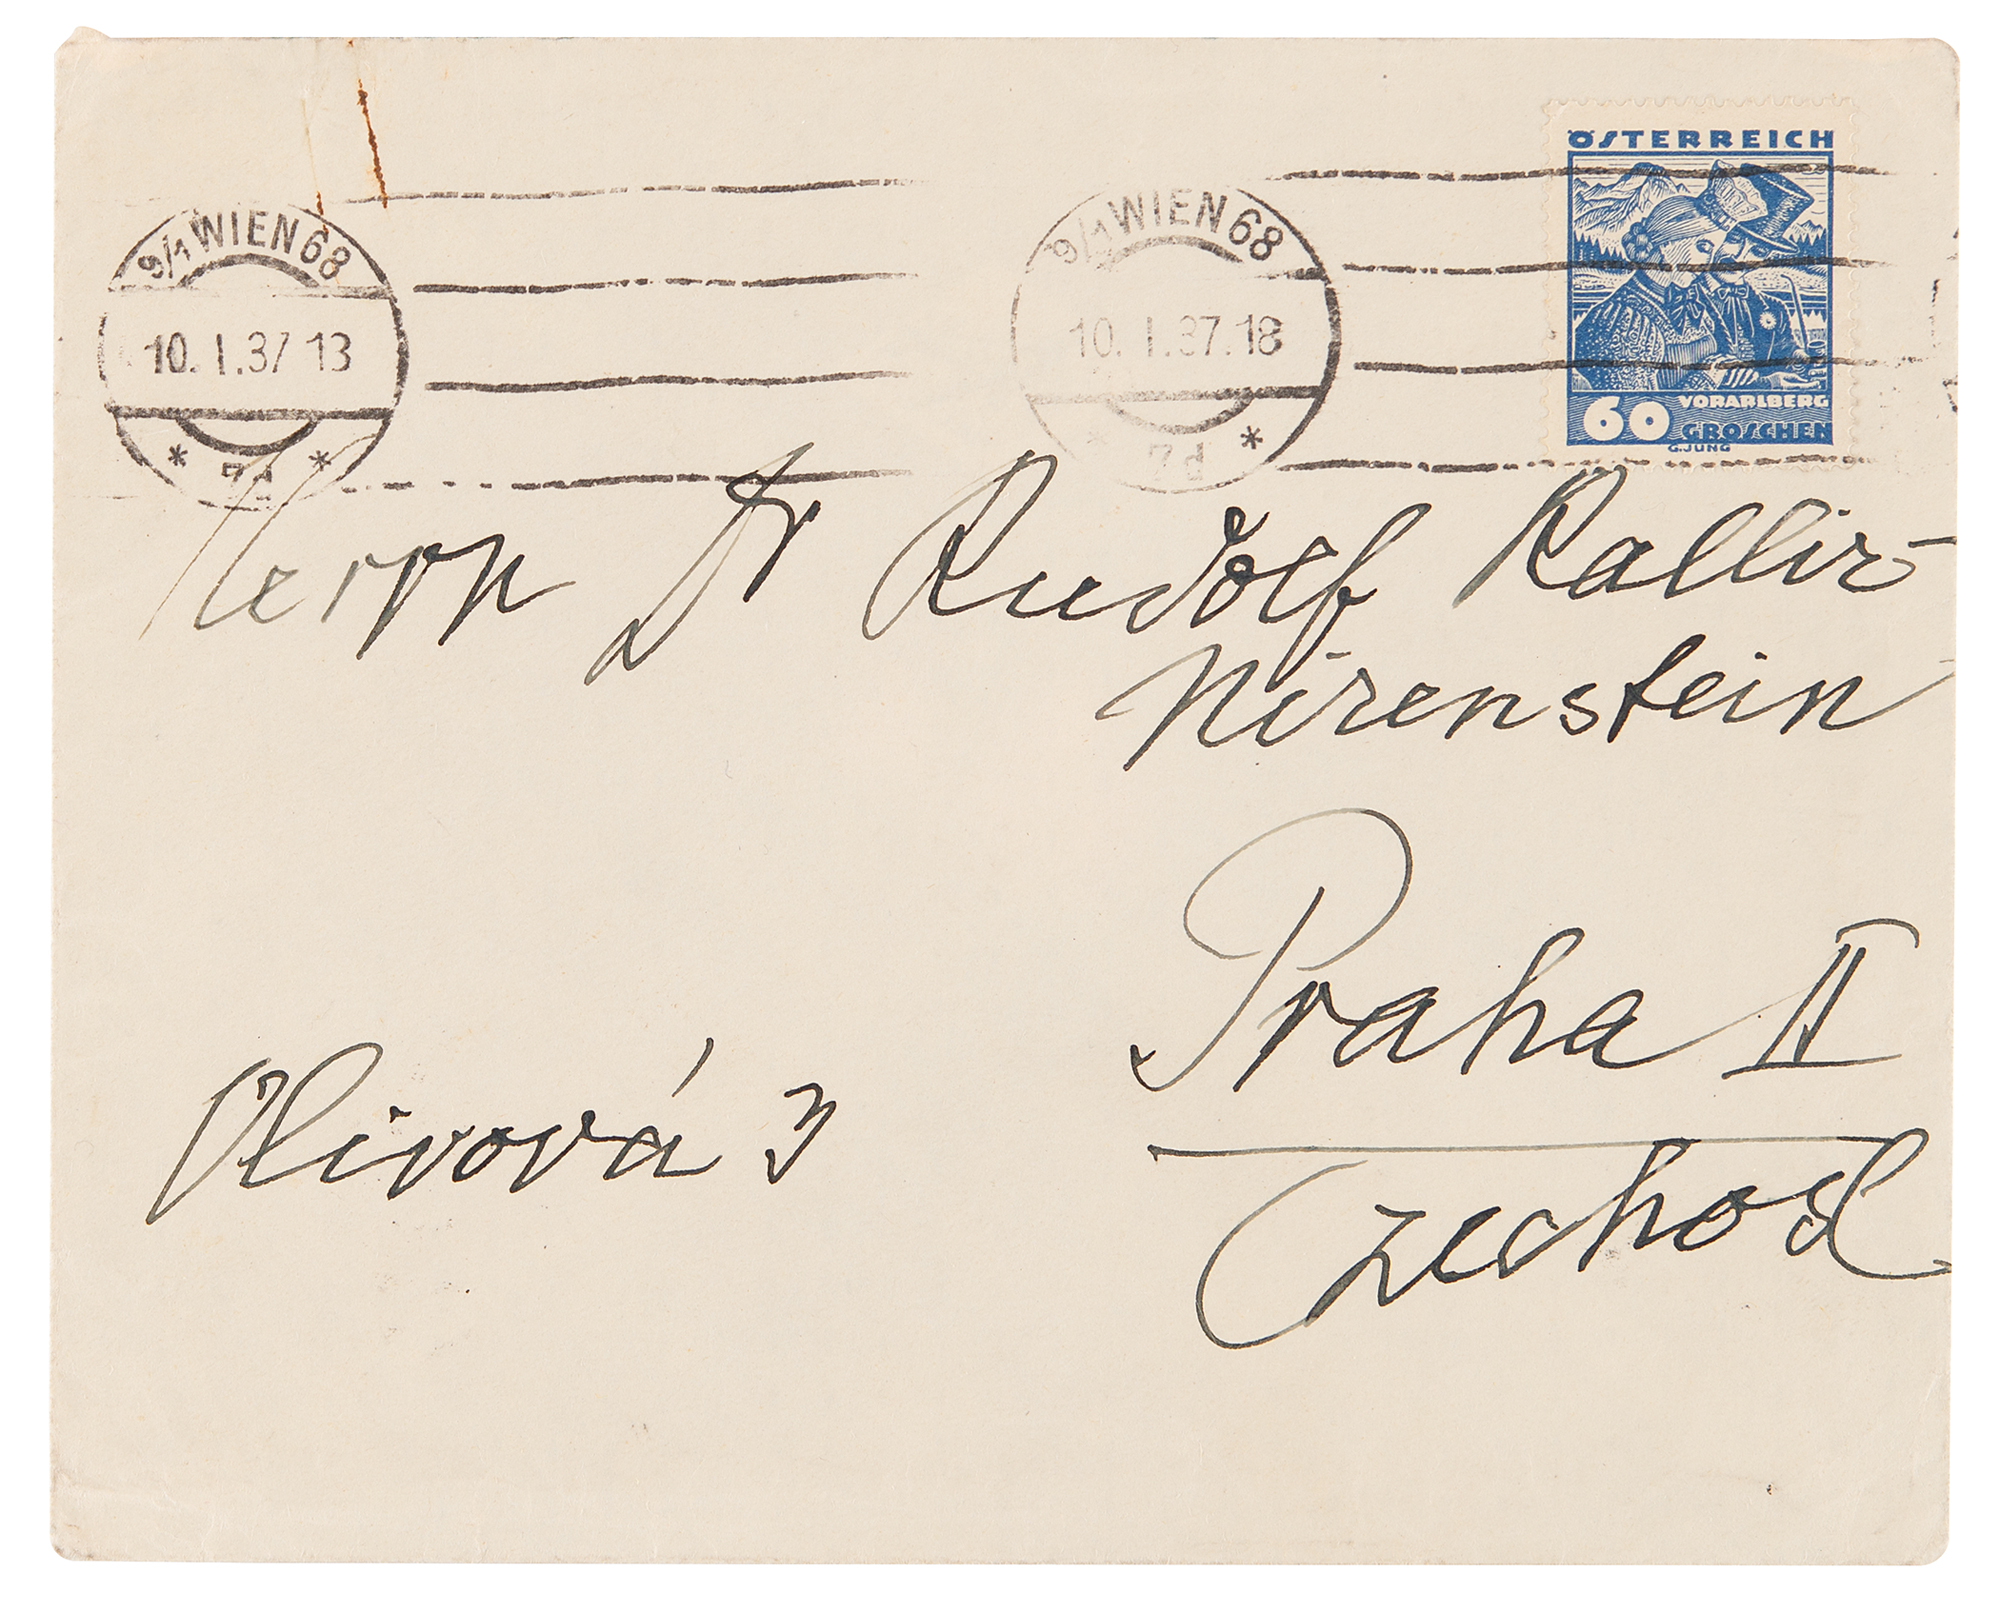 ÖSTERREICH
9/1 WIEN 68
10. I. 37 13
* 7d *
9/1 WIEN 68
10. I. 37. 18
* 7d *
VORARLBERG
60 GROSCHEN
G.JUNG
Herrn Dr Rudolf Kallir-
Nirenstein
Praha II
Olivová 3
Czechosl